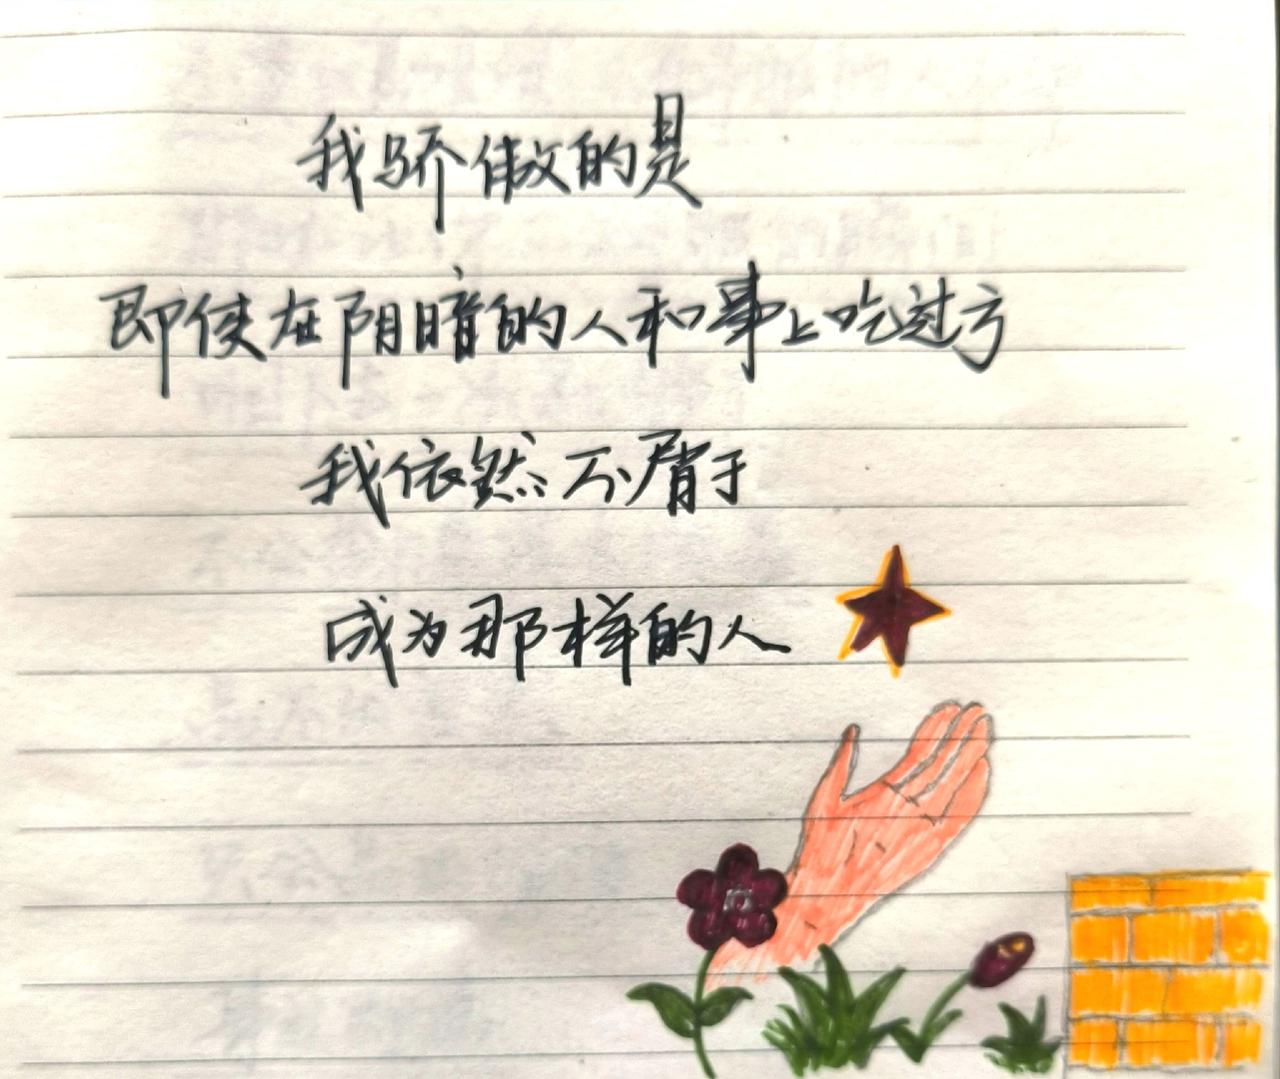 我骄傲的是
即使在阴暗的人和事上吃过亏
我依然不屑于
成为那样的人